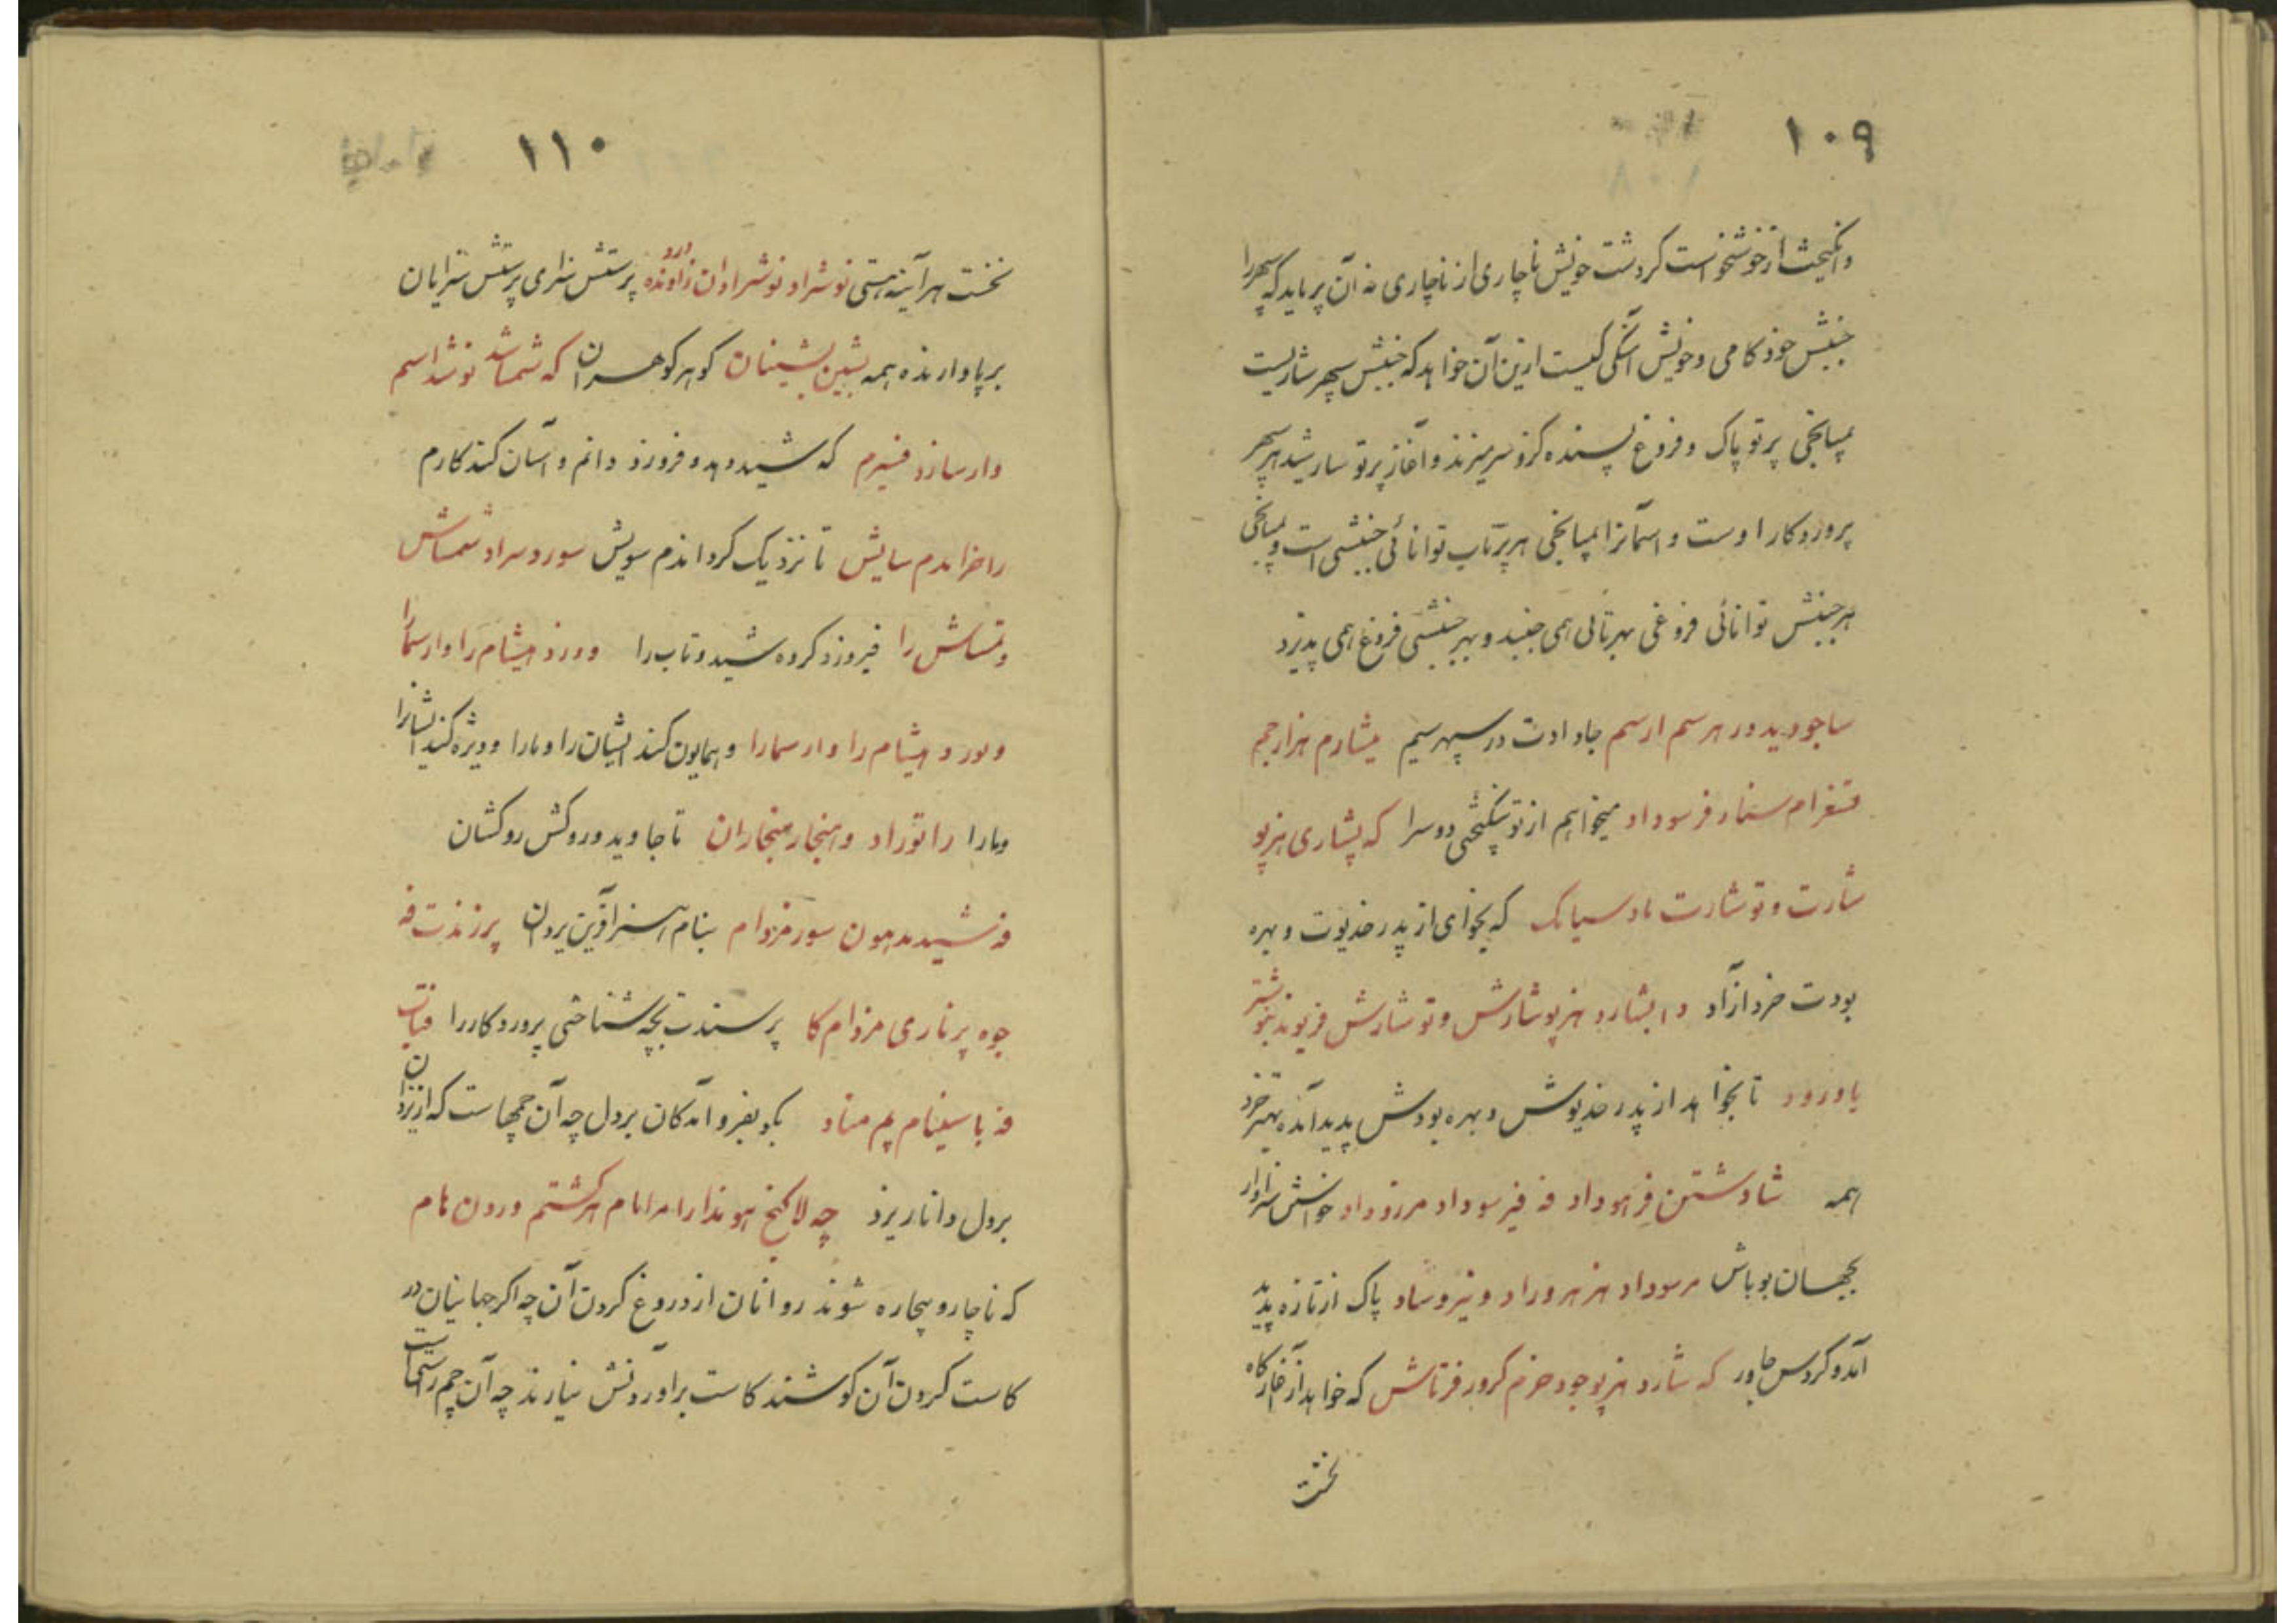 ۱۰۹
وانگیخت از خوشخواست کردشت خویش ناچاری از ناچاری نه آن پرباید که سپهر را
جنبش خود کامی و خویش آهنگی کیست ازین آن خواهد که جنبش سپهر شاریست
بمیانجی پرتو پاک و فروغ پسنده کزو سر میزند و آغاز پرتو سار شید هر سپهر
پروردکار اوست و اسمانرا بمیانجی هر پرتاب توانائی جنبشی است و بمیانجی
هر جنبش توانائی فروغی بهر تابی همی جنبد و بهر جنبشی فروغ همی پذیرد
ساجودید در هرسم ارسم جاودات در سپهرسیم میشارم هزارجم
سنمار فرسوداد میخواهم از تو نیکبختی دوسرا که بشاری هزپو
شارت و توشارت ماد سیامک که بخواهی از پدر خدیوت و بهره
بودت خرد ازاد تا بشارد هزپو شارش و توشارش فریوند
یاورود تا بخواهد از پدر خدیوش و بهره بودش پدید آمده بهتر خرد
همه شادشتن فرهوداد فه فیرسوداد مرزوداد خواهش سزاوار
بجهان بوباش مرسوداد هزهروراد و نیروساد پاک از تازه پدید
آمد و کردش جاور که شارد هزپو جود خرم کرور فرتاش که خواهد از آغازگاه
نخست
۱۱۰
نخست هرآینه هستی نوشراد نوشرادان زاونده درود پرستش سزای پرستش سزایان
برپا دارنده همه بشین بشینان کوهر کوهران که شماسد نوشد اسم
وارسازد فنیرم که شید دهد و فروزد دانم و آسان کند کارم
را خراندم سایش تا نزدیک کرداندم سویش سورد سراد شمساش
وتمساش را فیروزد کروه شید و تاب را وورزد هیشام را وارسمارا
وبورد هیشام را وارسمارا و همایون کند ایشان را و مارا و ویژه کند ایشانرا
ومارا را توراد و هنجار هنجاران تا جاوید و روکش روکشان
فه شید مدهون سور مزدام بنام سزا آفرین یزدان پرزندت فه
جوه پرناری مزدام کا پرسندت بچه شناختی پروردکار را
فه باسینام یم مناد بگو بفرو آمدکان بردل چه آن چمهاست که از یزدان
بردل دانا ریزد چه لاکنخ هوندارامرامام هرکشتم ورون هام
که ناچار و بیچاره شوند روانان از دروغ کردن آن چه اکر جهانیان در
کاست کردن آن کوشند کاست برآوردنش نیارند چه آن چم راستست